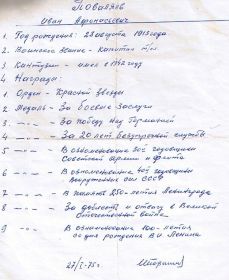 Поваляев
Иван Афанасьевич
1. Год рождения: 28 августа 1915 года
2. Воинское звание - Капитан
3. Контузия - имел в 1942 году
4. Награды:
1. Орден - Красной Звезды
2. Медаль - За боевые заслуги
3 За победу над Германией
4 За 20 лет безупречной службы
5 В ознаменование 30й годовщины
Советской армии и флота
6 В ознаменование 40й годовщины
вооруженных сил СССР
7 В память 250-летия Ленинграда
8 За доблесть и отвагу в Великой
отечественной войне
9 В ознаменование 100-летия
со дня рождения В.И. Ленина
27/I-75г.